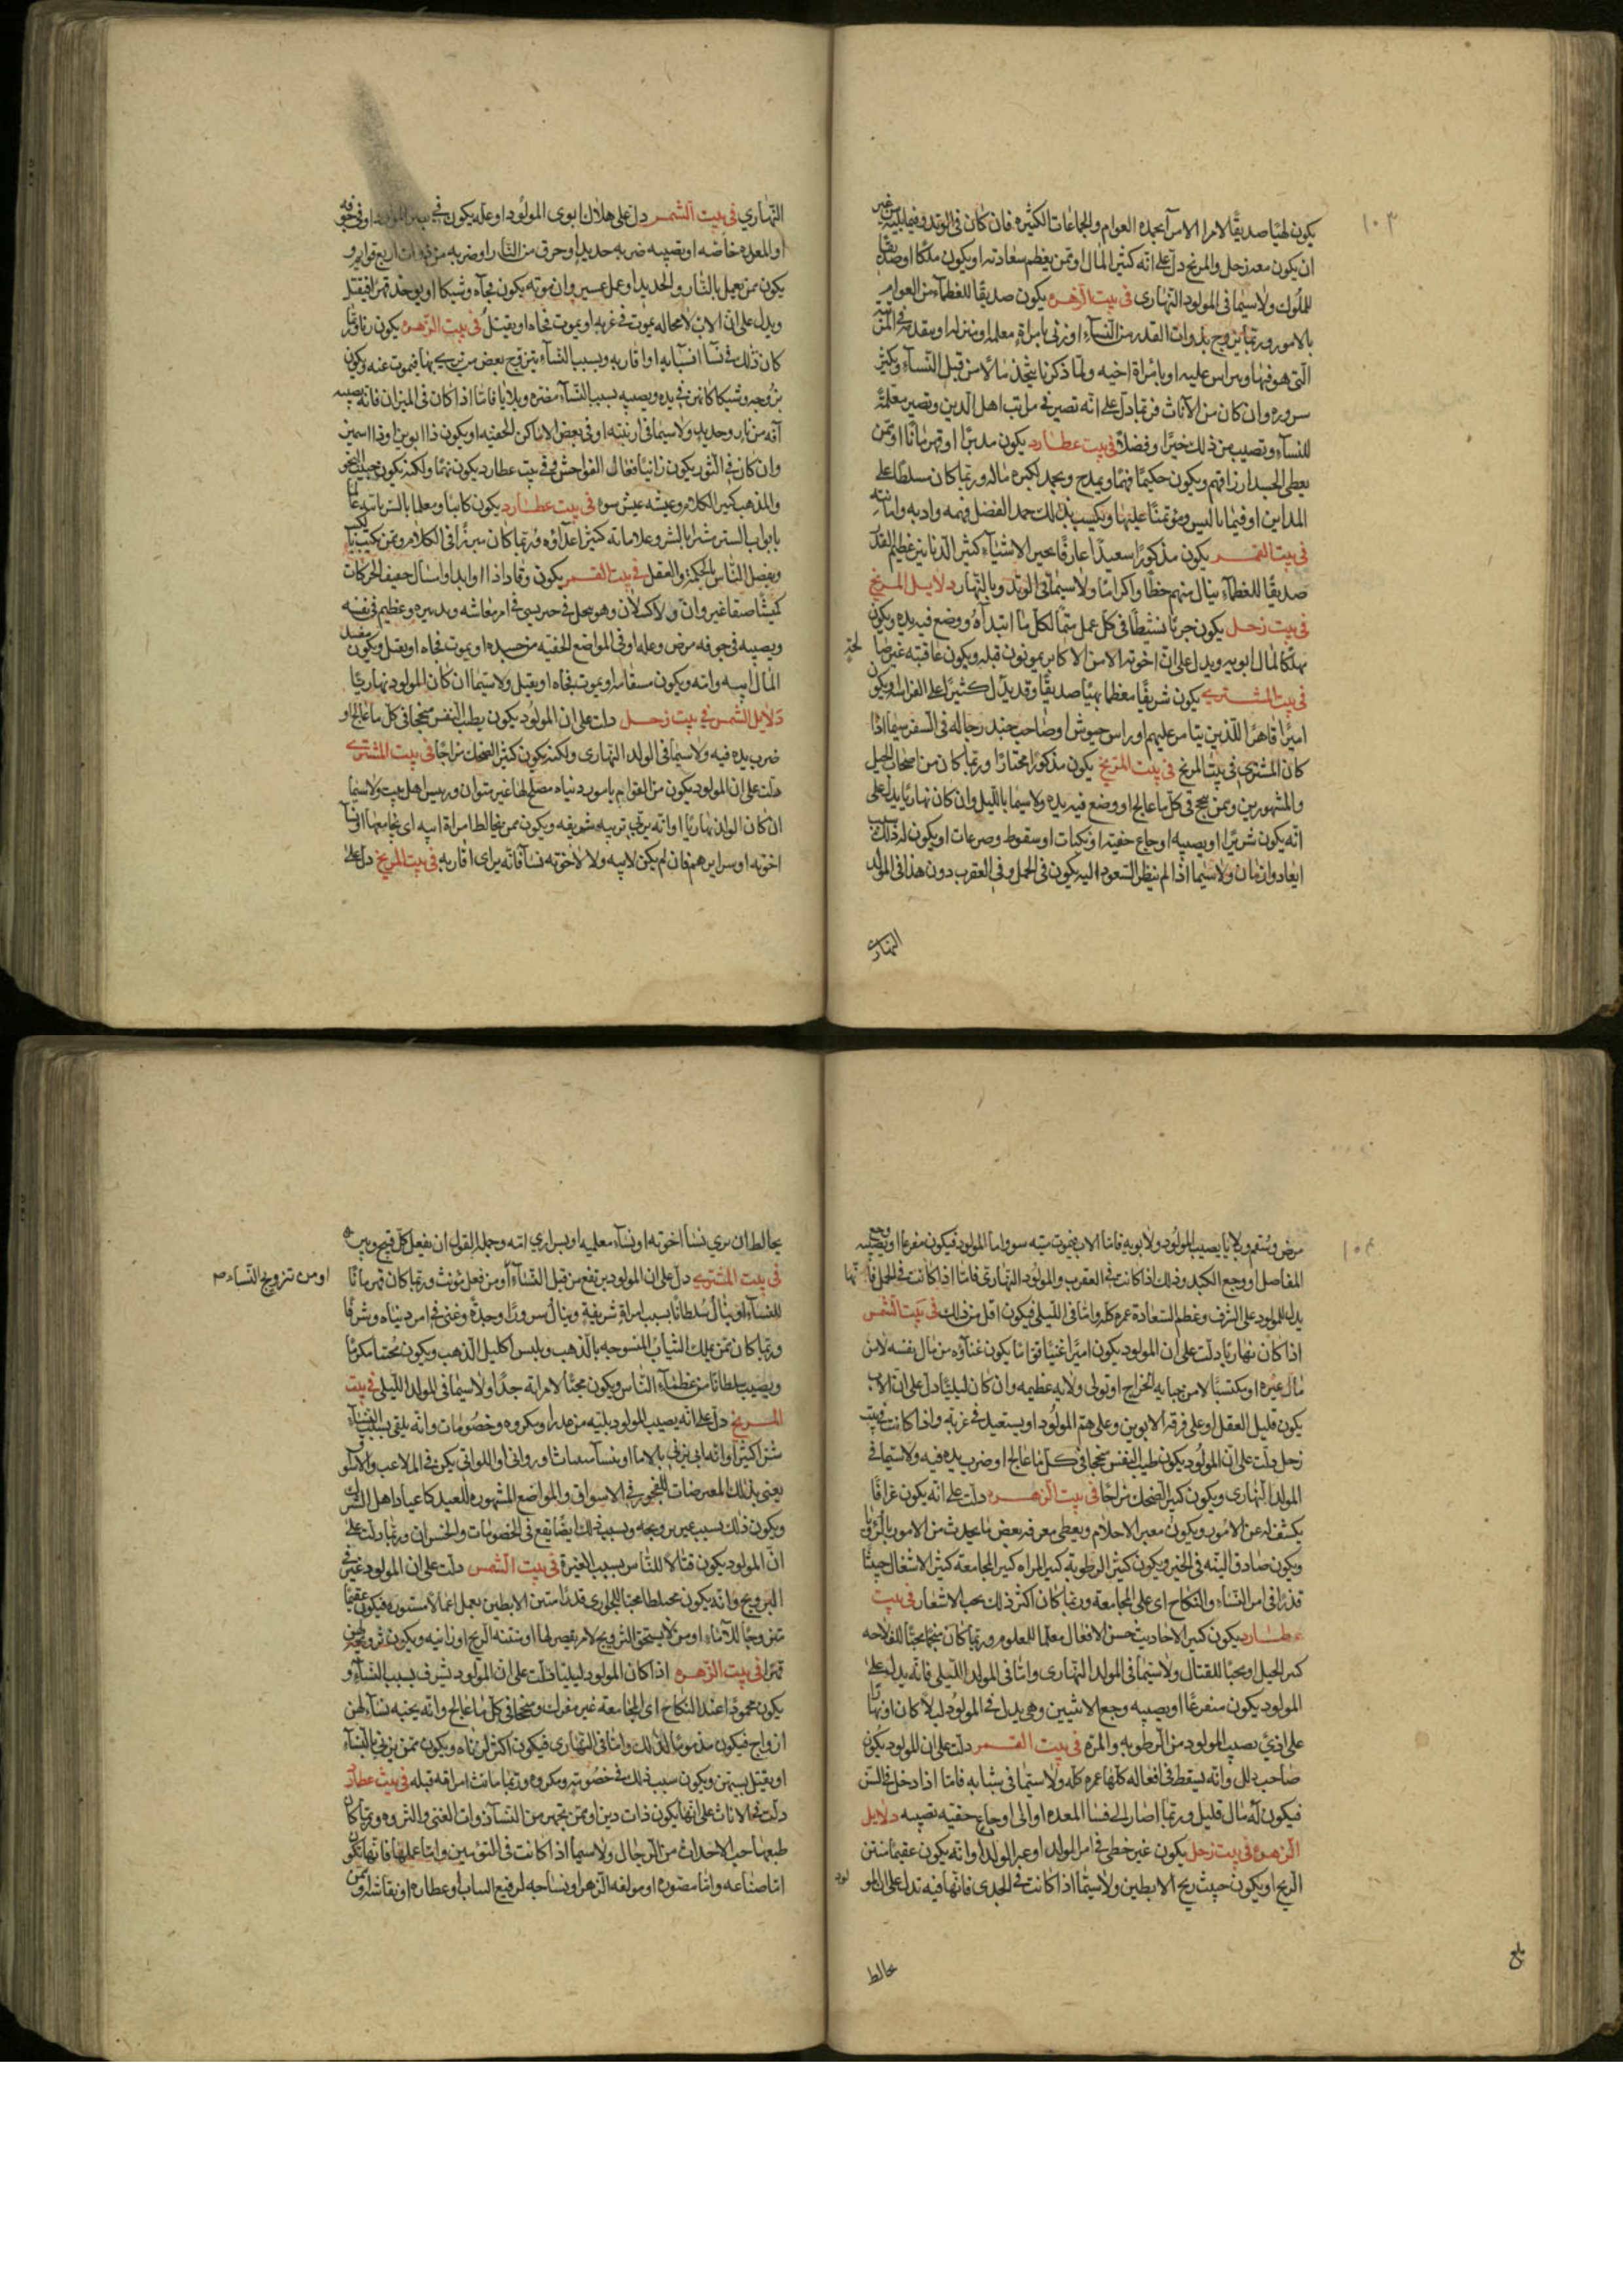 ١٠٣
يكون لهيًا صديقًا للامرا الاس آبحده العوام والجماعات الكثيره فان كان في الوتد وفيما يليه من غير
ان يكون معه زحل والمريخ دل على انه كثير المال او ممن يعظم سعادته او يكون ملكا او صديقًا
للملوك ولاسيما في المولود النهاري في بيت الزهره يكون صديقًا للعظماء من العوام
بالامور وربما تزوج بذوات القدر من النساء او زنى بامراة معلمه او منزله او متقدمه في المدينة
التي هو فيها ويراس عليه او بامراة اخيه ولما ذكرنا يتخذ مالا من قبل النساء ويكثر
سروره وان كان من الاناث فربما دل على انه تصير في مراتب اهل الدين وتصير معلمة
للنساء وتصيب من ذلك خيرا وفضلا في بيت عطارد يكون مدبرا او قهرمانا او ممن
يعطي الجسد ارزاقهم ويكون حكيما فهما ويمدح ويحمد لكثره ماله وربما كان مسلطا على
المداين او فيما ماليس ومؤتمنا عليها ويكسب بذلك حمد الفضل فهمه وادبه وامانته
في بيت القمر يكون مذكورا سعيدا عارفا بخير الاشياء كثير الدنانير عظيم القدر
صديقا للعظماء ينال منهم حظا واكراما ولاسيما في الوتد وبالنهار دلايل المريخ
في بيت زحل يكون جريًا نشيطًا في كل عمل متمًا لكل ما ابتداه ووضع فيه يده ويكون
مهلكا لمال ابويه ويدل على ان اخوته الاسن الاكابر يموتون قبله ويكون عاقبته غير صالحة
في بيت المشتري يكون شريفًا معظما بهيًا صديقًا وقد يدل كثيرا على الفراسه ويكون
اميرًا قاهرًا للذين يتامر عليهم او راس جيوش او صاحب جند رجاله في السفر سيما اذا
كان المشتري في بيت المريخ في بيت المريخ يكون مذكورا مختارا وربما كان من اصحاب الحيل
والمشهورين وممن ينجح في كل ما عالج او وضع فيه يده ولاسيما بالليل وان كان نهاريًا يدل على
انه يكون شريرا او يصيبه اوجاع خفيه او نكبات او سقوط وصرعات او يكون له بسبب ذلك
ابعاد وازمان ولاسيما اذا لم ينظر السعود اليه يكون في الحمل وفي العقرب دون هذا في المولد
النهاري
النهاري في بيت الشمس دل على هلاك ابوي المولود او عله يكون في بصر المولود او في جوفه
او المعده خاصه او يصيبه ضربه حديد او حرق من النار او ضربه من ذوات اربع قوايم او
يكون ممن يعمل بالنار والحديد او عمل عسير وان موته يكون فجآه وشيكا او يوخذ قهرا فيقتل
ويدل على ان الاب لا محاله يموت في غربه او يموت فجاه او يقتل في بيت الزهره يكون زنا وربما
كان ذلك في نسآ انسبايه او اقاربه وبسبب النسآء يتزوج بعض من يزني بها فيموت عنه ويكون
تزوجه وشيكا كانه في يده ويصيبه بسبب النسآء مضره وبلايا فاما اذا كان في الميزان فانه يصيبه
آفه من نار وحديد ولاسيما في ارنبته او في بعض الاماكن الخفيه او يكون ذا ابوين او ذا اسمين
وان كان في الثور يكون زانيًا فعال الفواحش وفي بيت عطارد يكون فهمًا ولكنه يكون خبيث النحو
والمذهب كثير الكلام وعيشه عيش سوه في بيت عطارد يكون كاتبا ومعلما بالسر بانه عالما
بابواب الستر شرا بالبشر وعلاماته كثير اعداؤه وربما كان مبرزًا في الكلام وممن يكتب الكتب
ويفضل الناس بالحكمة والعقل في بيت القمر يكون وقادا اذا اوابد او اسال خفيف الحركات
كيسًا صقا غير وان ولا كسلان وهو يعجل في حريس في امر معاشه وتدبيره وعظيم في نفسه
ويصيبه في جوفه مرض وعله او في المواضع الخفيه من جسده او يموت فجاه او يقتل ويكون مفسد
المال ابيه وامه ويكون مسقاما ويموت بفجاه او يقتل ولاسيما ان كان المولود نهاريًا
دلايل الشمس في بيت زحل دلت على ان المولود يكون يطيب النفس منجحا في كل ما عالج او
ضرب يده فيه ولاسيما في الولد النهاري ولكنه يكون كثير الضحك مزاحا في بيت المشتري
دلت على ان المولود يكون من القوام بامور دنياه مصلح لها غير متوان ورييس اهل بيت ولاسيما
ان كان الولد نهاريًا او انه يربى تربيه شريفه ويكون ممن يخالط امراة ابيه اي يجامعها او نسآ
اخوته او سراريهم فان لم يكن لابيه ولا لاخوته نسآ فانه يراى اقاربه في بيت المريخ دل على
١٠٤
مرض وسقم وبلايا يصيب المولود ولابويه فاما الاب فيموت ميته سو واما المولود فيكون مفزعا او يصيبه وجع
المفاصل او وجع الكبد وذلك اذا كانت في العقرب والمولود النهاري فاما اذا كانت في الحمل فانها
يدل للمولود على الشرف وعظم السعادة عمره كله واما في الليلي فيكون اقل من ذلك في بيت الشمس
اذا كان نهاريًا دلت على ان المولود يكون اميرا غنيًا قوّاما يكون غناؤه من مال نفسه لا من
مال غيره او يكتسبها لا من جبايه الخراج او تولى ولايه عظيمه وان كان ليليًا دل على ان الاب
يكون قليل العقل او على فرقه الابوين وعلى هم المولود او يستعيد في غربة واذا كانت في بيت
زحل دلت على ان المولود يكون طيب النفس منجحا في كل ما عالج او ضرب يده فيه ولاسيما في
المولد النهاري ويكون كثير الضحك مزاحا في بيت الزهره دلت على انه يكون عرافًا
يكشف له عن الامور ويكون معبر الاحلام ويعطى معرفه بعض ما يحدث من الامور بالرؤيا
ويكون صادق النيه في الخير ويكون كثير الرطوبه كثير المراه كثير المجامعه كثير الاشغال خبيثًا
قذرًا في امر النساء والنكاح اي على المجامعة وربما كان اكثر ذلك يحب الاشعار في بيت
عطارد يكون كثير الاحاديث حسن الافعال معلما للعلوم وربما كان منجما محبًا للفلاحه
كثير الحيل او محبًا للقتال ولاسيما في المولد النهاري واما في المولد الليلي فانه يدل على
المولود يكون متفرغًا او يصيبه وجع الانثيين وهي يدل في المولود ليلا كان او نهارًا
على اذيً يصيب المولود من الرطوبه والمرة في بيت القمر دلت على ان المولود يكون
صاحب دلل وانه يسقط في افعاله كلها عمره كله ولاسيما في شبابه فاما اذا دخل في السن
فيكون له مال قليل وربما اصار الى فسا المعده او الى اوجاع خفيه تصيبه دلايل
الزهره في بيت زحل يكون غير خطي في امر المولد او عبر الولد او انه يكون عقيما منتن
الريح او يكون خبيث ريح الابطين ولاسيما اذا كانت في الجدي فانها فيه تدل على ان المولود
يخالط
بلغ
يخالط ان سري نسآ اخوته او نسآء معلميه او سراري امه وجملة القول ان يفعل كل قبيح ويرى
في بيت المشتري دل على ان المولود يرتفع من قبل النساء او من فعل مونث وربما كان قهرمانًا
او من تزويج النساء صح
للنساء او ينال سلطانًا بسبب امراة شريفة وينال سرورًا وجدةً وغنى في امر دنياه وشرفًا
وربما كان ممن يملك الثياب المنسوجه بالذهب ويلبس اكليل الذهب ويكون مُحتما مكرمًا
ويصيب سلطانًا من عظماء الناس ويكون محبًا لامراته جدًا ولاسيما في المولد الليلي في بيت
المريخ دل على انه يصيب المولود بليه من مدر او مكروه وخصومات وانه يلقى بسبب النساء
شرًا كثيرًا وانه ايم يزني بالاما او بنسآ مسات او زواني او اللواتي يكون في الملاعب والاسواق
يعني بذلك المعرضات للفجور في الاسواق والمواضع المشهوره للعيد كاعياد اهل الشرك
ويكون ذلك بسبب غير تزويجه وبسبب ذلك ايضًا يقع في الخصومات والخسران وربما دلت على
ان المولود يكون قتالا للناس بسبب الغيرة في بيت الشمس دلت على ان المولود غير في
التزويج وانه يكون مخبلطا محبًا للجواري قذرا منتن الابطين يعمل اعمالا مستوره فيكون عقيمًا
متزوجًا للاماء او من لا يستحق التزويج لامر يقصر لها او منتنه الريح او زانيه ويكون تزويجه لهن
قهرًا في بيت الزهره اذا كان المولود ليليًا دلت على ان المولود يشرف بسبب النساء و
يكون محمودًا عند النكاح اي المجامعه غير مفرك ومنجحا في كل ما عالج وانه يحبه نساء لهن
ازواج فيكون مذمومًا لذلك واما في النهاري فيكون اكثر لزناه ويكون ممن يزني بالنساء
او يقتل بسببهن ويكون سبب ذلك في خصومه ومكروه وربما ماتت امراته قبله في بيت عطارد
دلت في الاناث على انها يكون ذات دين او ممن يتجهن من النساء ذوات الغنى والثروه وربما كان
طبعها حب الاحداث من الرجال ولاسيما اذا كانت في القوسين واما عملها فانها تكون
اما صناعه واما مصوره او مولفه الزهر او نساجه لرفيع الثياب او عطاره او نقاشه او ممن